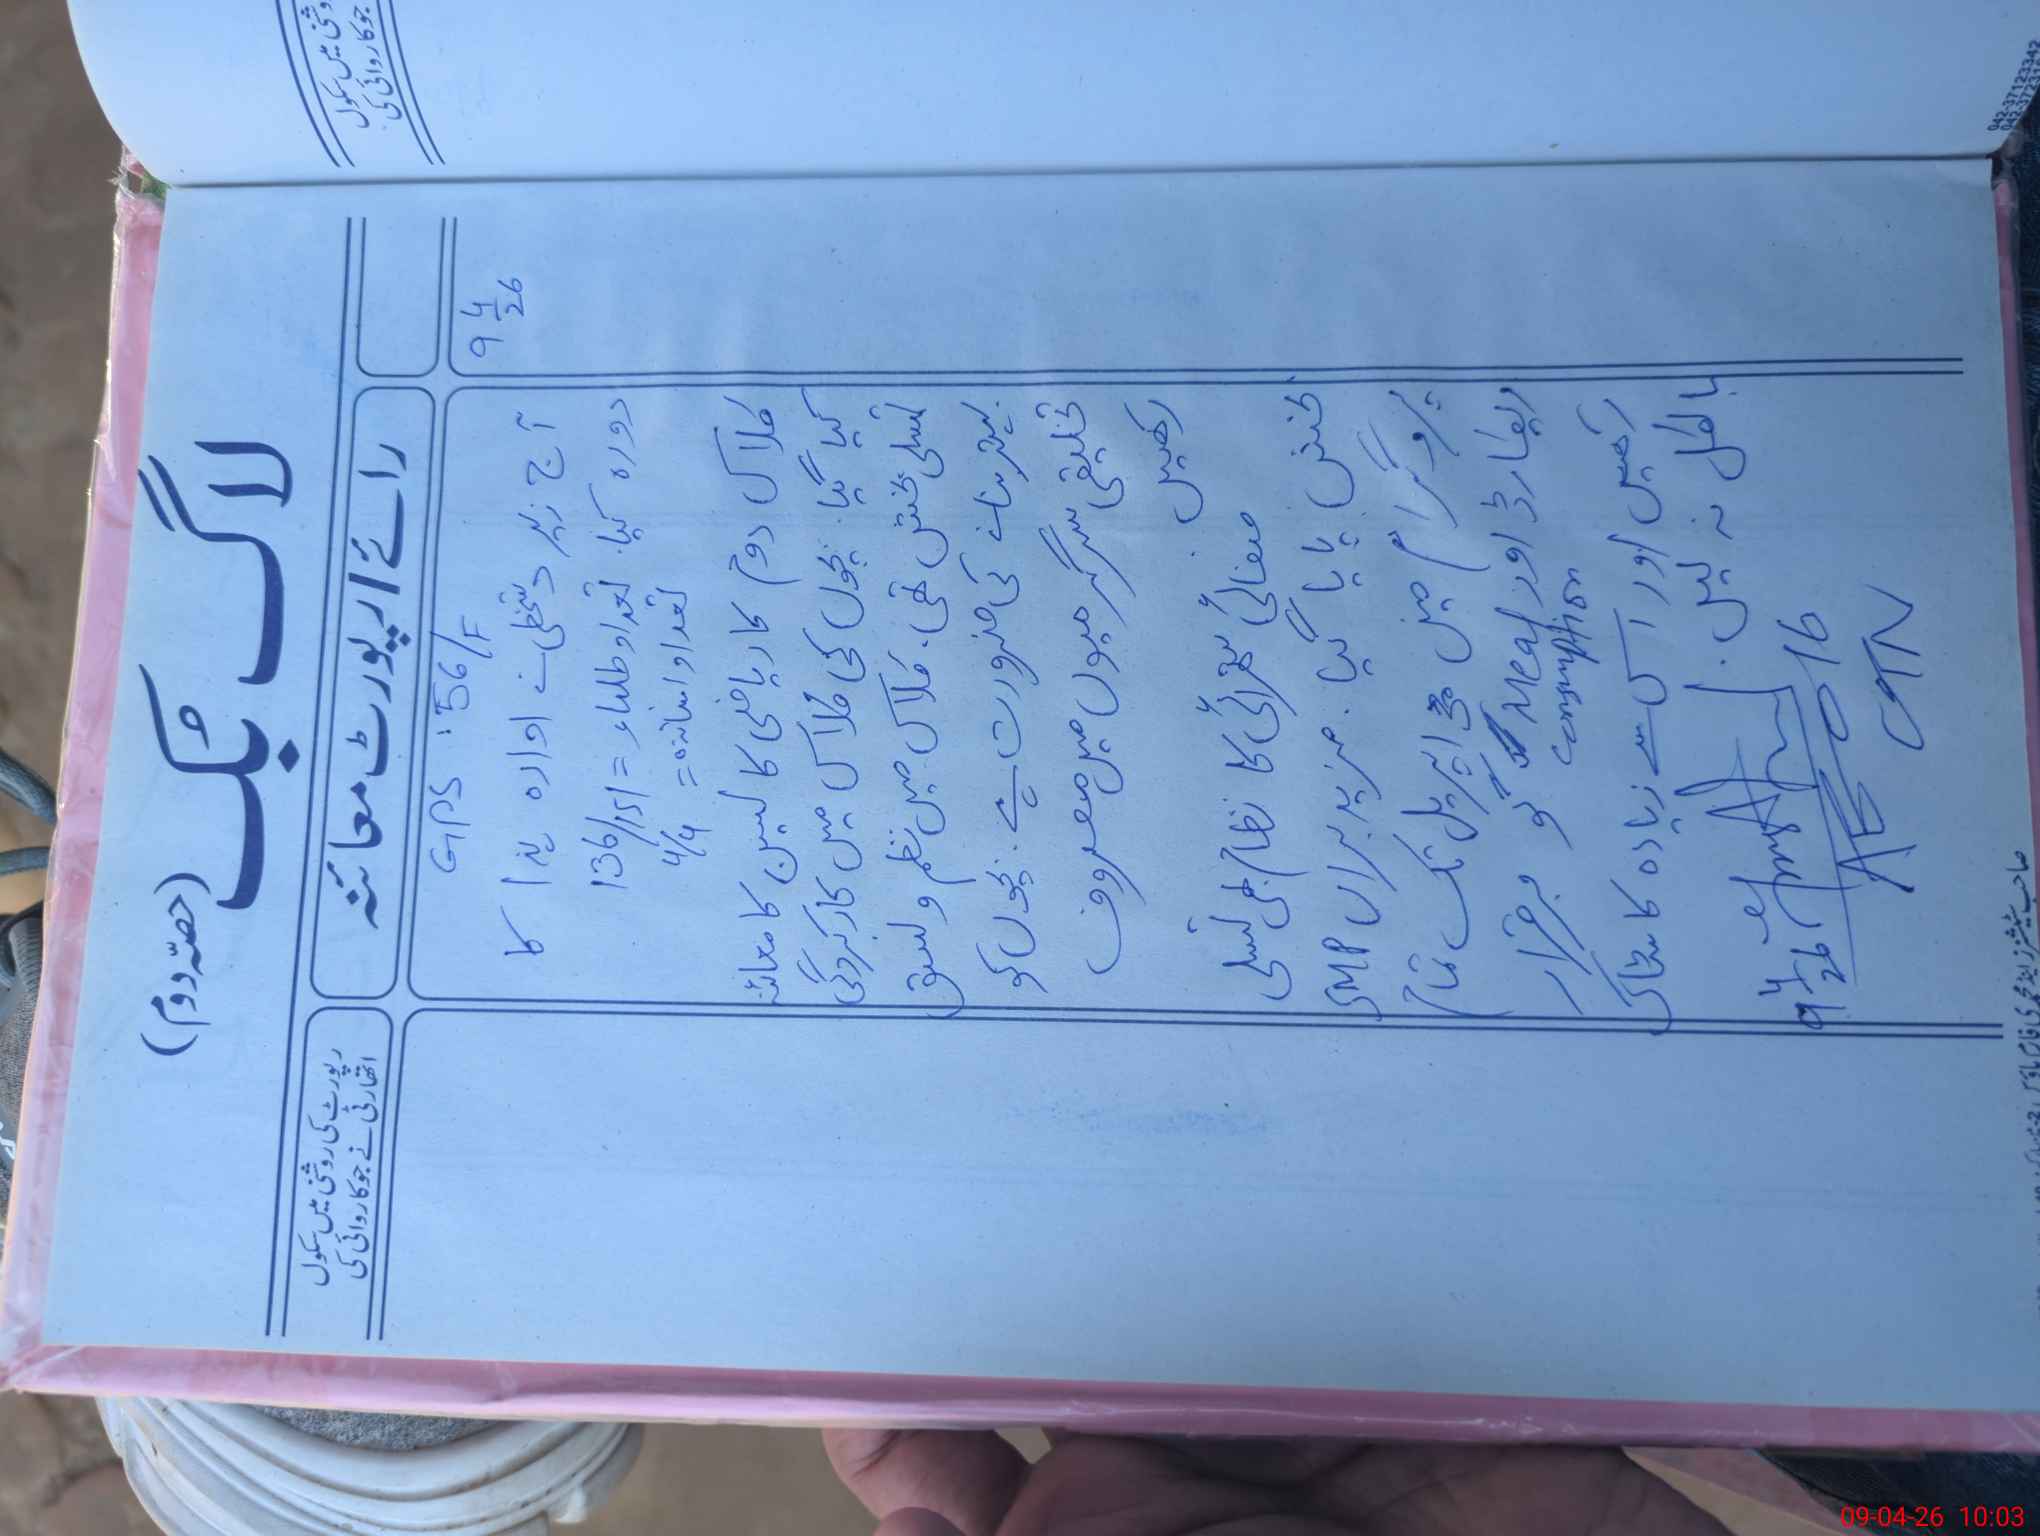 لاگ بُک
(حصّہ دوم)
رائے / رپورٹ معائنہ
رپورٹ کی روشنی میں سکول
اتھارٹی نے جو کاروائی کی
9 4/26
GPS : 56/F
آج زیر دستخطی نے ادارہ ہذا کا
دورہ کیا۔ تعداد طلباء = 136/151
تعداد اساتذہ = 4/4
کلاس دوم کا ریاضی کا لیسن کا معائنہ
کیا گیا۔ بچوں کی کلاس میں کارکردگی
تسلی بخش تھی۔ کلاس میں نظم و نسق
بہتر بنانے کی ضرورت ہے۔ بچوں کو
تخلیقی سرگرمیوں میں مصروف
رکھیں۔
صفائی ستھرائی کا نظام بھی تسلی
بخش پایا گیا۔ مزید براں SMP
پروگرام میں اپریل تک تمام
ریکارڈ اور Meal کو برقرار
consumption
رکھیں اور اس سے زیادہ کا سٹاک
بالکل نہ لیں۔
9 4/26
AEO 16
CTN
روشنی میں سکول
جو کاروائی کی
042-37123342
09-04-26 10:03